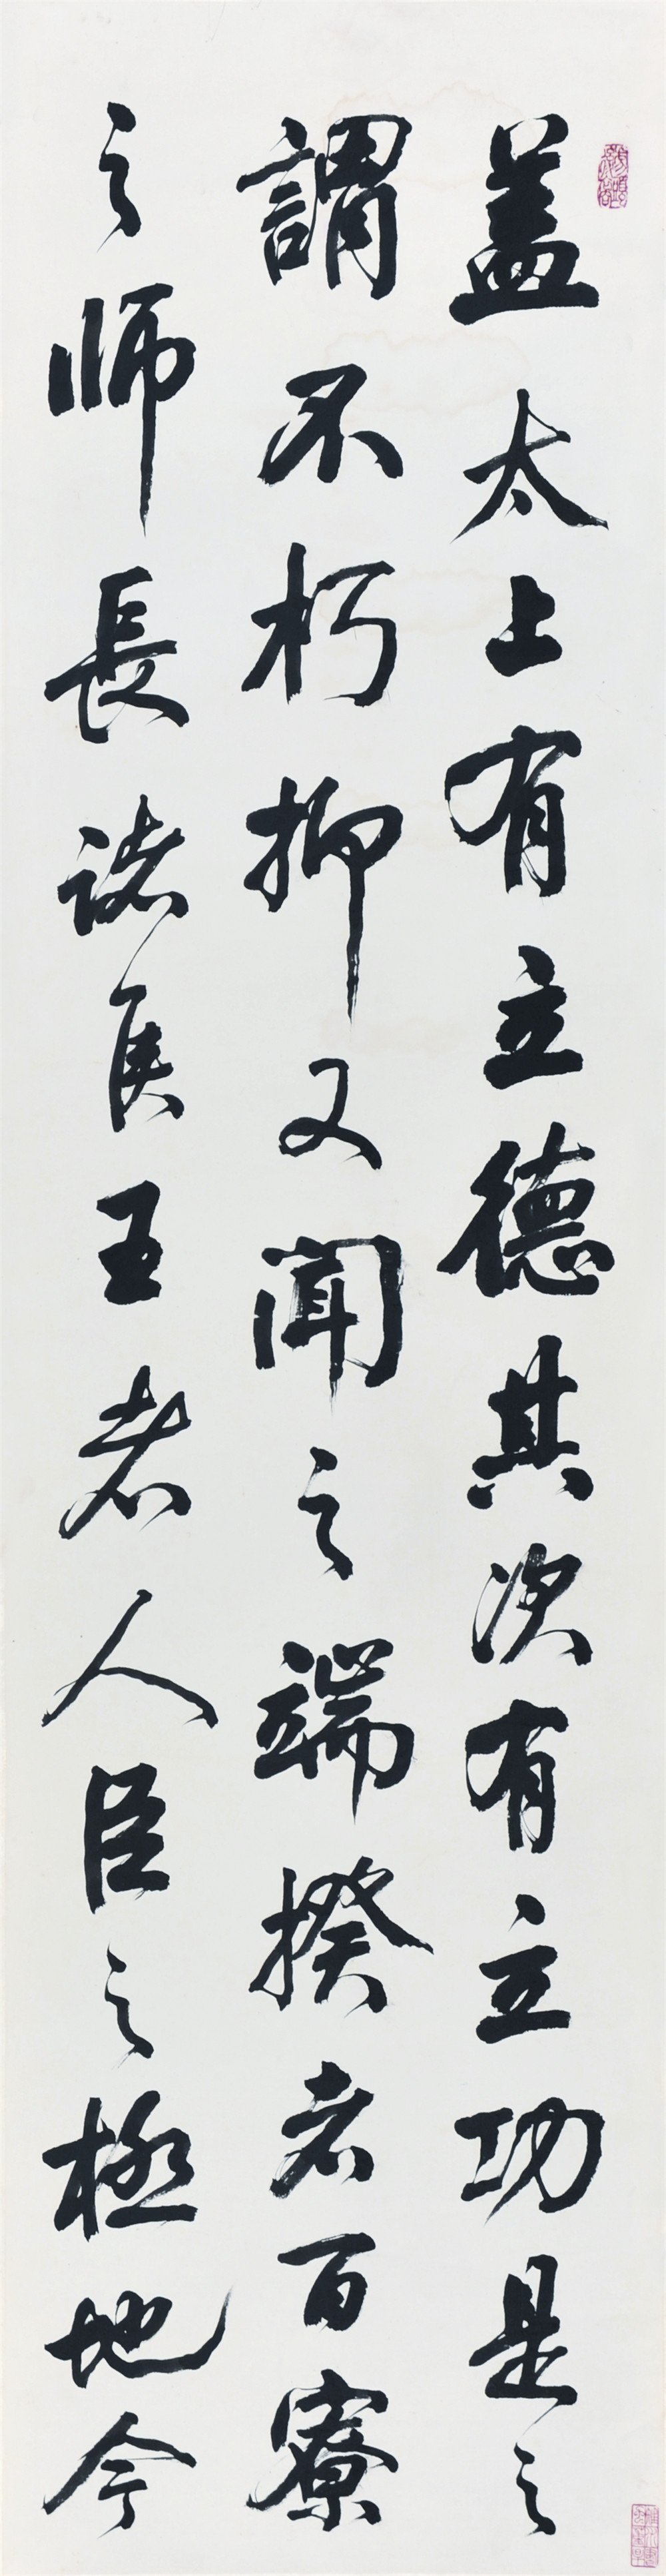 盖太上有立德其次有立功是之
謂不朽抑又聞之端揆者百寮
之师長诸侯王者人臣之極地今